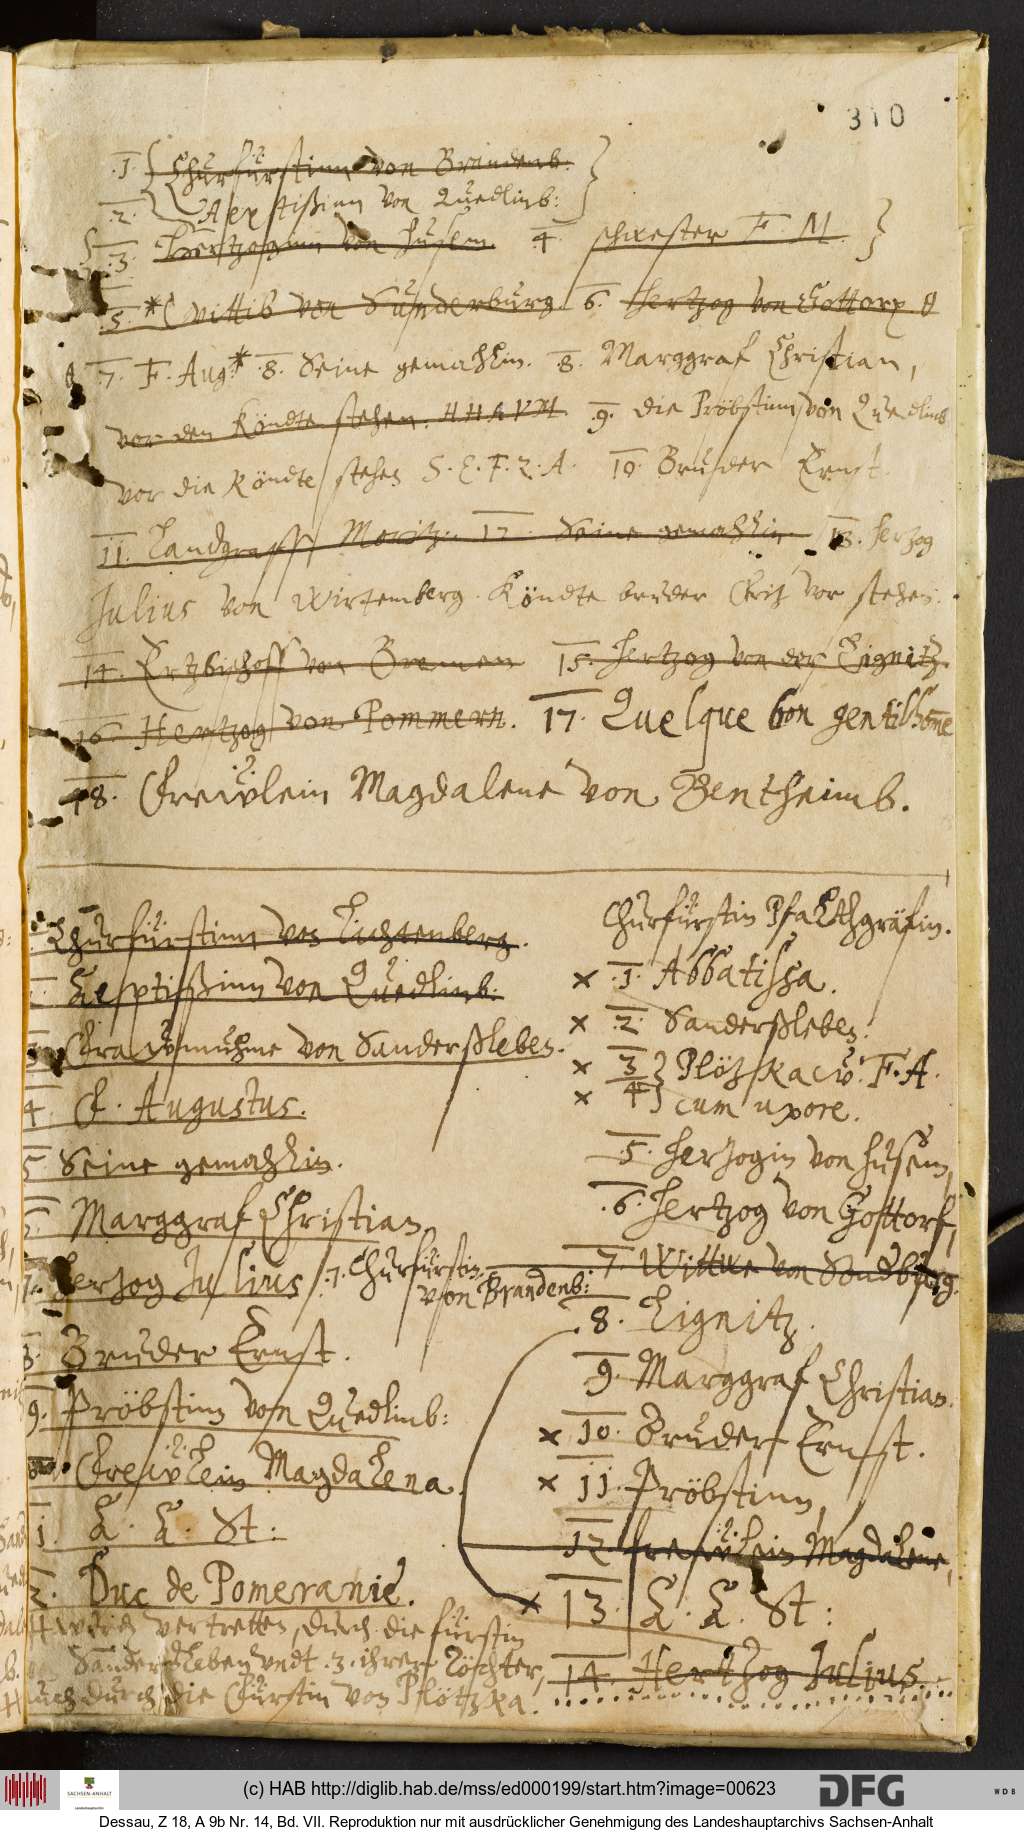 310
.1. Churfürstinn von Brandenb.
.2. Aeptißinn von Quedlinb:
.3. Hertzoginn von Husem 4. schwester F. M.
.5. * Wittib von Sunderburg. 6. Hertzog von Gottorp
.7. F. Aug.* .8. Seine gemahlin. .8. Marggraf Christian,
vor den köndte stehen. 9. die Pröbstinn von Quedlinb
vor die köndte stehen S. E. F. Z. A. 10. Bruder Ernst.
11. Landgraff Moritz. 12. Seine gemahlin 13. Herzog
Julius von Wirtemberg. Köndte bruder Fritz vor stehen.
14. Ertzbischoff von Bremen 15. Hertzog von der Lignitz.
16. Hertzog von Pommern. 17. Quelque bon gentilhome
18. Freüwlein Magdalene von Bentheimb.
Churfürstinn von Lichtenberg.
Aeptißinn von Quedlinb.
3 Fraw muhme von Sanderßleben.
4. F. Augustus.
5 Seine gemahlin.
Marggraf Christian,
7. Herzog Julius .7. Churfürstin
von Brandenb:
8. Bruder Ernst.
9. Pröbstinn von Quedlinb:
10. Freüwlein Magdalena.
1. A. A. St:
2. Duc de Pomeranie.
werden vertretten, durch die fürstin
von Sanderßleben undt .3. ihrer Töchter,
auch durch die Fürstin von Plötzka.
Churfürstin Pfaltzgräfin.
× .1. Abbatissa.
× .2. Sanderßleben.
× 3 } Plötzkaw. F. A.
× 4 } cum uxore.
.5. Herzogin von Husem,
.6. Hertzog von Gottorf,
7. Wittwe von Sondburg.
8. Lignitz.
9. Marggraf Christian.
× 10. Bruder Ernst.
× 11. Pröbstinn,
12 freüwlein Magdalene,
× 13. A. A. St:
14. Hertzog Julius.
(c) HAB http://diglib.hab.de/mss/ed000199/start.htm?image=00623
SACHSEN-ANHALT
Landeshauptarchiv
DFG
WDB
Dessau, Z 18, A 9b Nr. 14, Bd. VII. Reproduktion nur mit ausdrücklicher Genehmigung des Landeshauptarchivs Sachsen-Anhalt